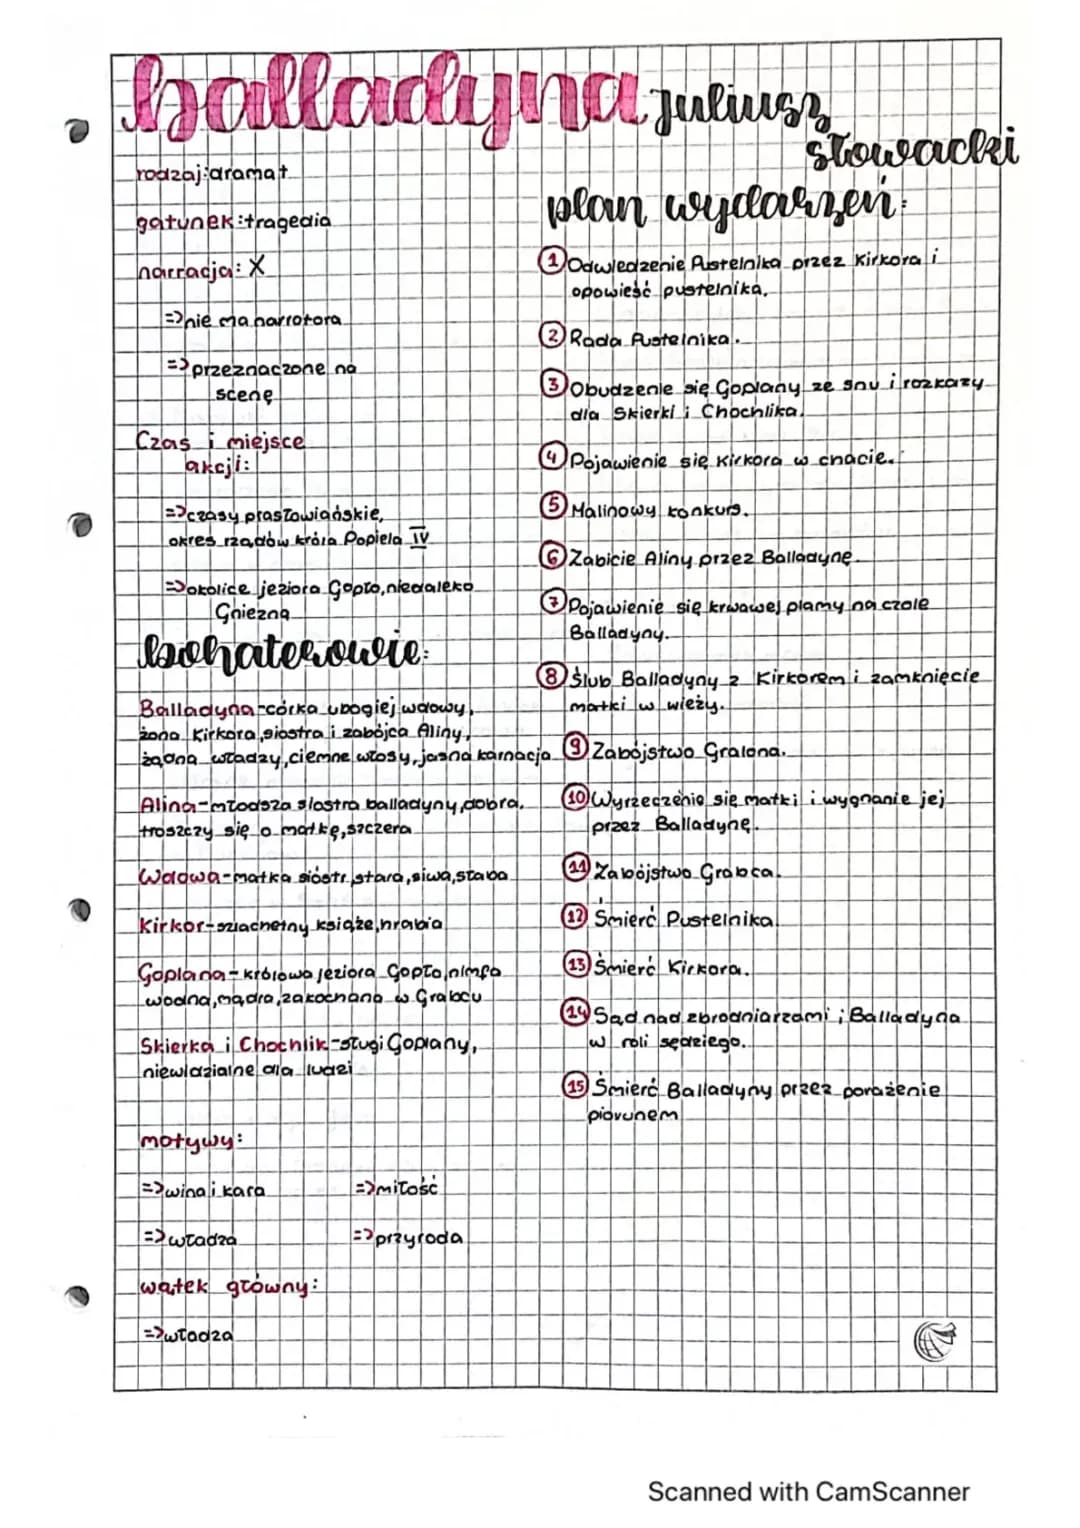 balladyna Juliusz
Słowacki
rodzaj: dramat
gatunek: tragedia
narracja: X
=> nie ma narratora
=> przeznaczone na
scenę
Czas i miejsce
akcji:
=> czasy prasłowiańskie,
okres rządów króla Popiela IV
=> okolice jeziora Gopło, niedaleko
Gniezna
bohaterowie:
Balladyna - córka ubogiej wdowy,
żona Kirkora, siostra i zabójca Aliny,
żądna władzy, ciemne włosy, jasna karnacja
Alina - młodsza siostra balladyny, dobra,
troszczy się o matkę, szczera
Wdowa - matka sióstr, stara, siwa, słaba
Kirkor - szlachetny książe, hrabia
Goplana - królowa jeziora Gopło, nimfa
wodna, mądra, zakochana w Grabcu
Skierka i Chochlik - sługi Goplany,
niewidzialne dla ludzi
motywy:
=> wina i kara => miłość
=> władza => przyroda
wątek główny:
=> władza
plan wydarzeń:
1 Odwiedzenie Pustelnika przez Kirkora i
opowieść pustelnika.
2 Rada Pustelnika.
3 Obudzenie się Goplany ze snu i rozkazy
dla Skierki i Chochlika.
4 Pojawienie się Kirkora w chacie.
5 Malinowy konkurs.
6 Zabicie Aliny przez Balladynę.
7 Pojawienie się krwawej plamy na czole
Balladyny.
8 Ślub Balladyny z Kirkorem i zamknięcie
matki w wieży.
9 Zabójstwo Gralona.
10 Wyrzeczenie się matki i wygnanie jej
przez Balladynę.
11 Zabójstwo Grabca.
12 Śmierć Pustelnika.
13 Śmierć Kirkora.
14 Sąd nad zbrodniarzami; Balladyna
w roli sędziego.
15 Śmierć Balladyny przez porażenie
piorunem
Scanned with CamScanner